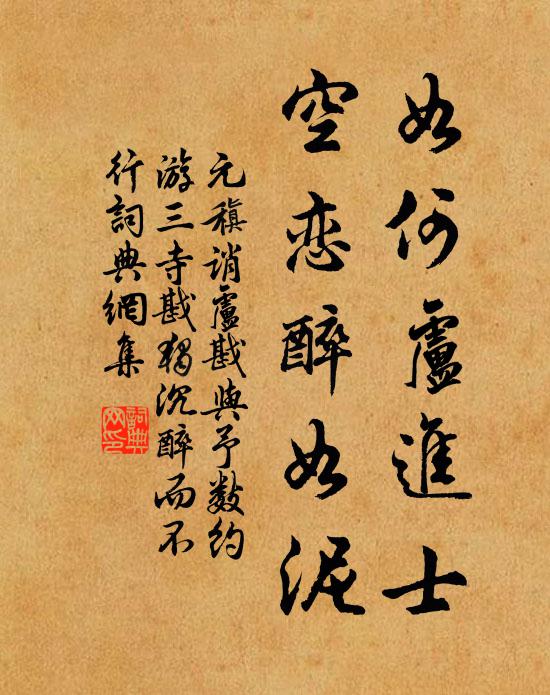 如何盧進士
空恋醉如泥
元稹誚盧戡與予數約
游三寺戡獨沉醉而不
行詞典網集
詞典网印